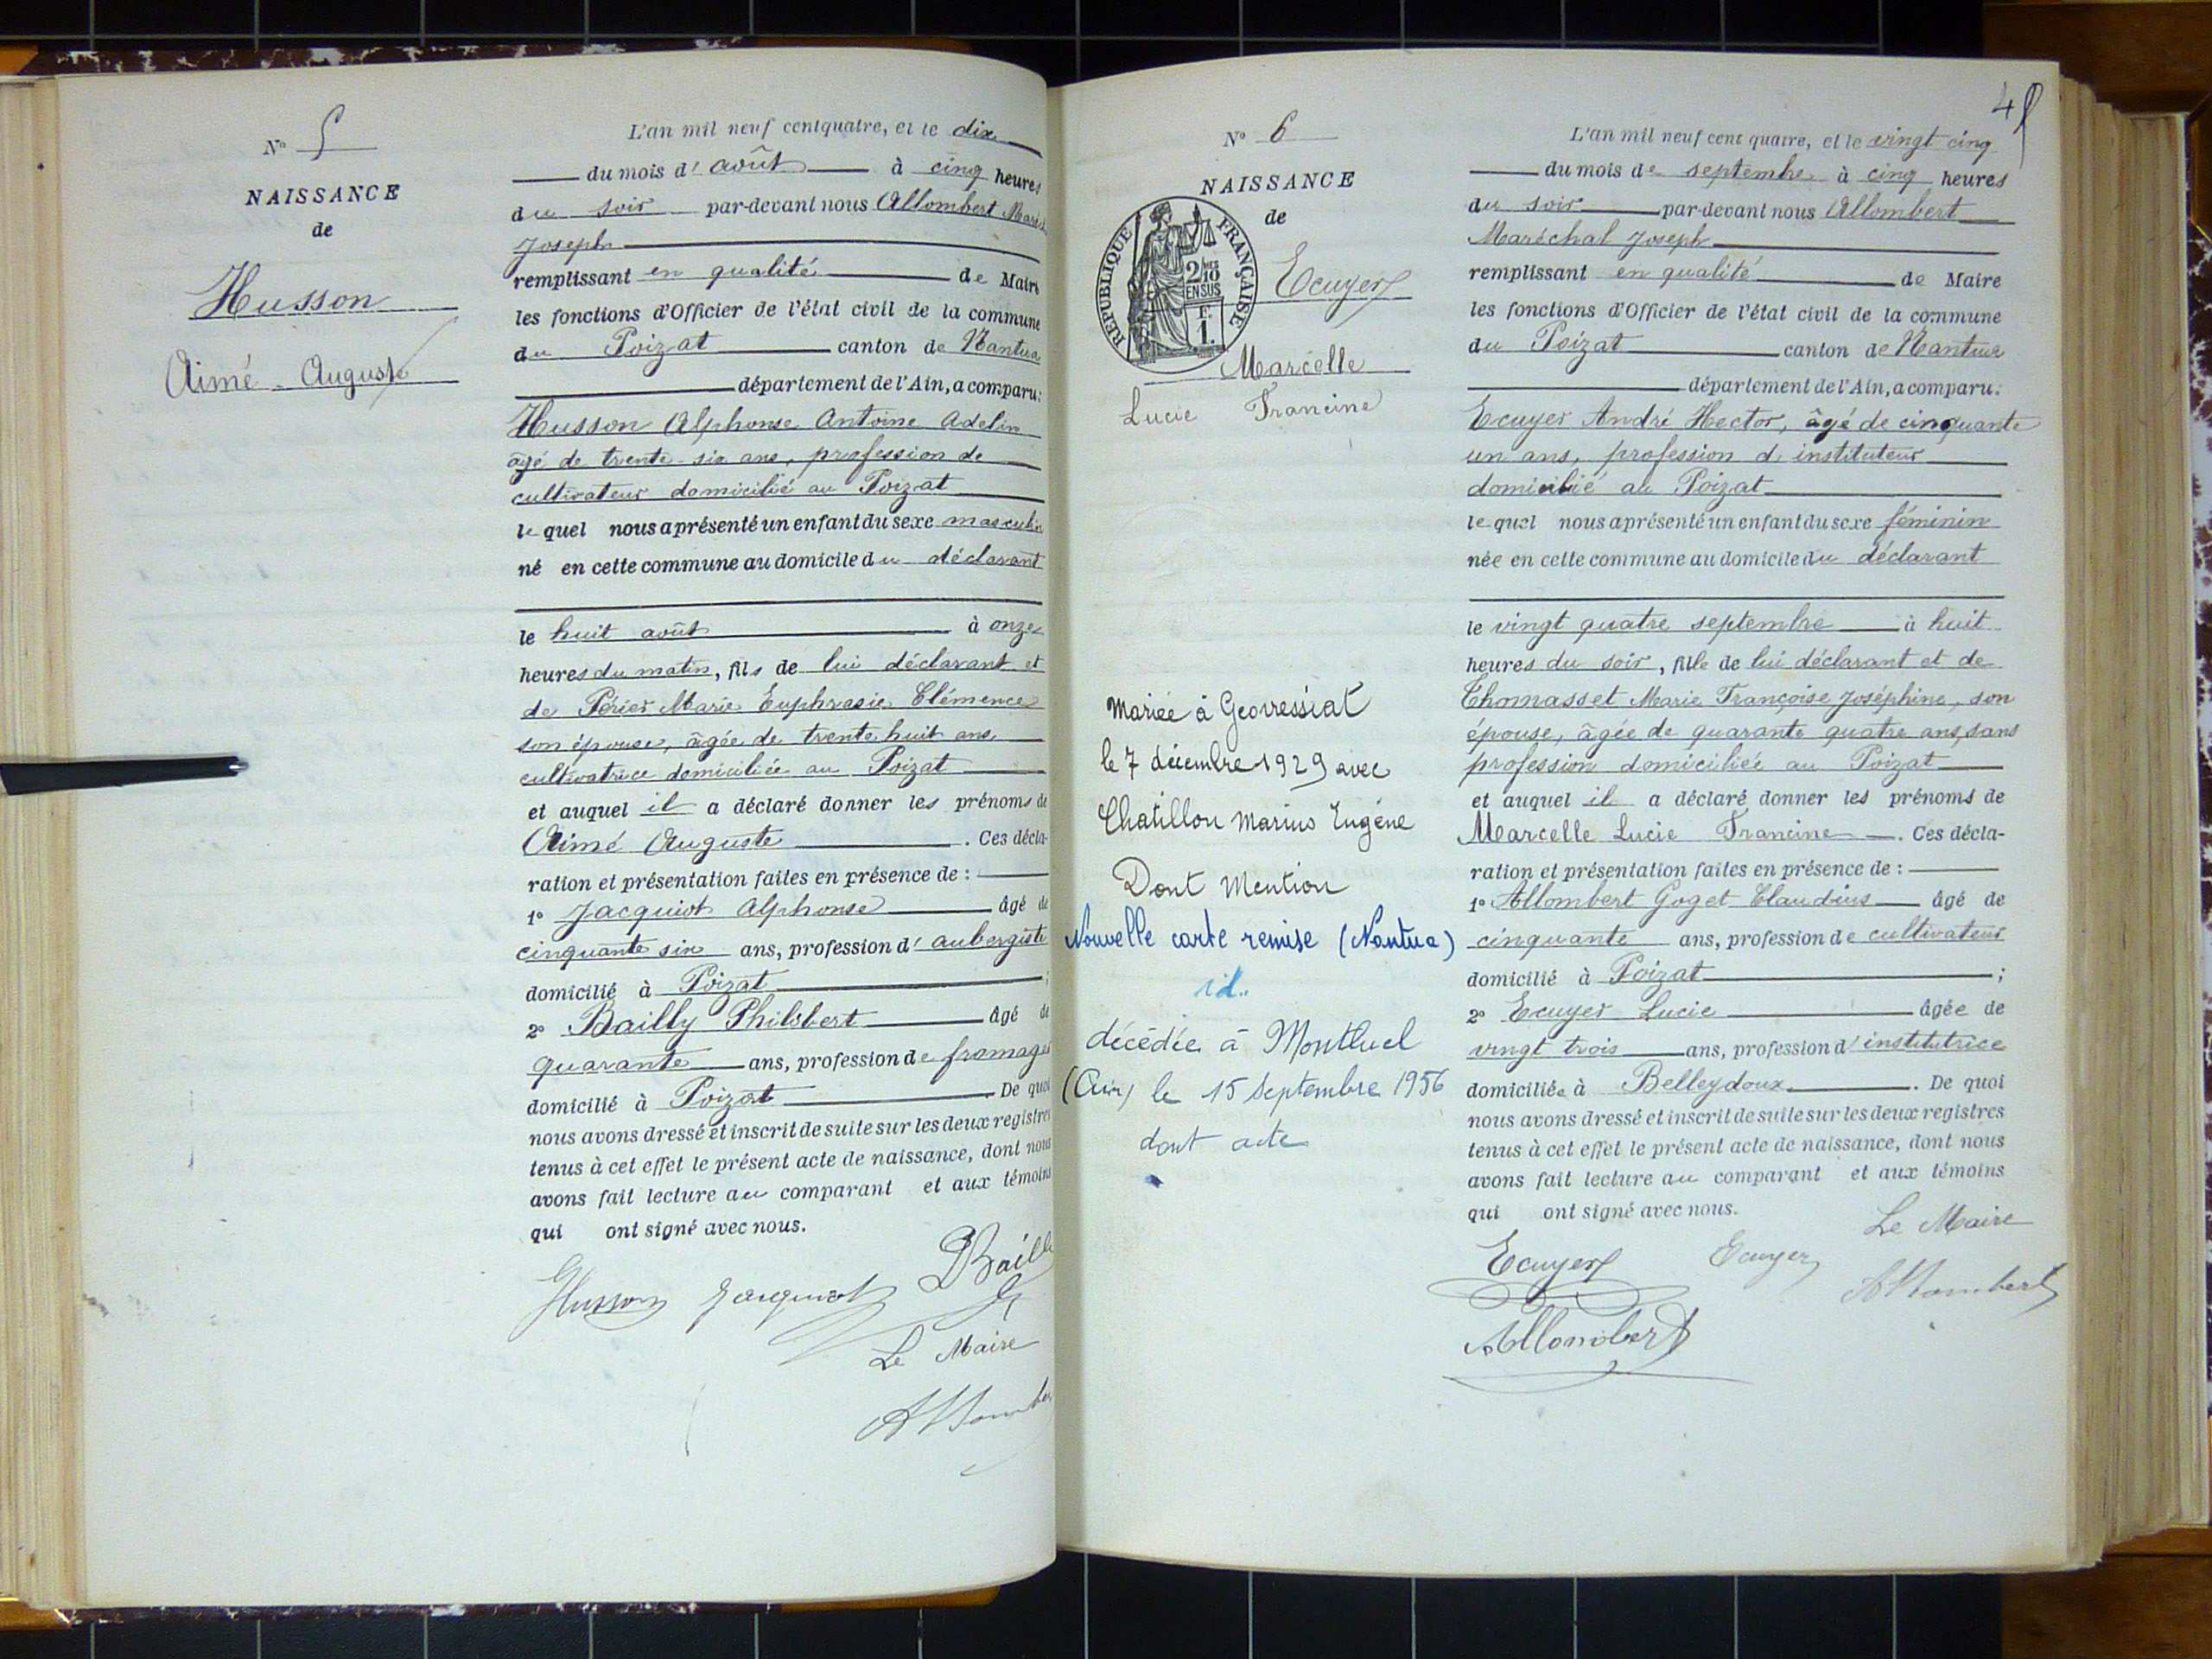 N° 5
NAISSANCE
de
Husson
Aimé - Auguste
L'an mil neuf cent quatre, et le dix
du mois d' août à cinq heures
du soir par-devant nous Allombert
Joseph
remplissant en qualité de Maire
les fonctions d'Officier de l'état civil de la commune
du Poizat canton de Nantua
département de l'Ain, a comparu:
Husson Alphonse Antoine Adelin
âgé de trente-six ans, profession de
cultivateur domicilié au Poizat
le quel nous a présenté un enfant du sexe masculin
né en cette commune au domicile du déclarant
le huit août à onze
heures du matin, fils de lui déclarant et
de Périer Marie Euphrasie Clémence
son épouse, âgée de trente huit ans,
cultivatrice domiciliée au Poizat
et auquel il a déclaré donner les prénoms de
Aimé Auguste . Ces décla-
ration et présentation faites en présence de :
1° Jacquiot Alphonse âgé de
cinquante six ans, profession d' aubergiste
domicilié à Poizat ;
2° Bailly Philibert âgé de
quarante ans, profession de fromager
domicilié à Poizat . De quoi
nous avons dressé et inscrit de suite sur les deux registres
tenus à cet effet le présent acte de naissance, dont nous
avons fait lecture au comparant et aux témoins
qui ont signé avec nous.
Husson Jacquiot Bailly
Le Maire
Allombert
N° 6
NAISSANCE
de
REPUBLIQUE FRANÇAISE
2/10MES
EN SUS
F.
1.
Ecuyer
Marcelle
Lucie Francine
Mariée à Geovressiat
le 7 décembre 1929 avec
Chatillon Marius Eugène
Dont Mention
Nouvelle carte remise (Nantua)
id.
décédée à Montluel
(Ain) le 15 Septembre 1956
dont acte
L'an mil neuf cent quatre, et le vingt cinq
du mois de septembre à cinq heures
du soir par-devant nous Allombert
Maréchal Joseph
remplissant en qualité de Maire
les fonctions d'Officier de l'état civil de la commune
du Poizat canton de Nantua
département de l'Ain, a comparu:
Ecuyer André Hector, âgé de cinquante
un ans, profession d' instituteur
domicilié au Poizat
le quel nous a présenté un enfant du sexe féminin
née en cette commune au domicile du déclarant
le vingt quatre septembre à huit
heures du soir, fille de lui déclarant et de
Thomasset Marie Françoise Joséphine, son
épouse, âgée de quarante quatre ans, sans
profession domiciliée au Poizat
et auquel il a déclaré donner les prénoms de
Marcelle Lucie Francine . Ces décla-
ration et présentation faites en présence de :
1° Allombert Goget Claudius âgé de
cinquante ans, profession de cultivateur
domicilié à Poizat ;
2° Ecuyer Lucie âgée de
vingt trois ans, profession d' institutrice
domiciliée à Belleydoux . De quoi
nous avons dressé et inscrit de suite sur les deux registres
tenus à cet effet le présent acte de naissance, dont nous
avons fait lecture au comparant et aux témoins
qui ont signé avec nous.
Le Maire
Ecuyer Ecuyer Allombert
Allombert